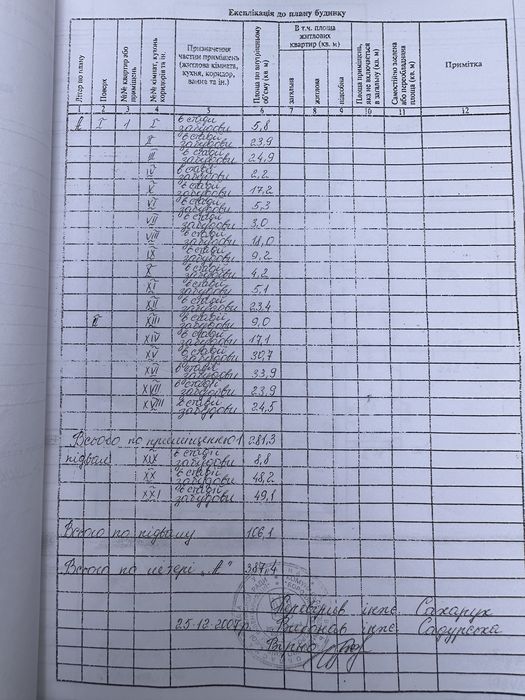 Експлікація до плану будинку
Літер по плану
Поверх
№№ квартир або приміщень
№№ кімнат, кухонь коридорів та ін.
Призначення частин приміщень (житлова кімната, кухня, коридор, ванна та ін.)
Площа по внутрішньому об'єму (кв. м)
В т.ч. площа житлових квартир (кв. м)
загальна
житлова
підсобна
Площа приміщень, яка не включається в загальну (кв. м)
Самостійно зведена або переобладнана площа (кв. м)
Примітка
1 2 3 4 5 6 7 8 9 10 11 12
А І 1 І в стадії забудови 5,8
ІІ в стадії забудови 23,9
ІІІ в стадії забудови 24,9
IV в стадії забудови 2,2
V в стадії забудови 17,2
VI в стадії забудови 5,3
VII в стадії забудови 3,0
VIII в стадії забудови 18,0
IX в стадії забудови 9,2
X в стадії забудови 4,2
XI в стадії забудови 5,1
XII в стадії забудови 23,4
ІІ XIII в стадії забудови 9,0
XIV в стадії забудови 17,1
XV в стадії забудови 30,7
XVI в стадії забудови 33,9
XVII в стадії забудови 23,9
XVIII в стадії забудови 24,5
Всього по приміщенню 1 281,3
підвал XIX в стадії забудови 8,8
XX в стадії забудови 48,2
XXI в стадії забудови 49,1
Всього по підвалу 106,1
Всього по літері „А" 387,4
Перевірив інж. Сахарук
25-12-2007р. Виконав інж. Садурська
Вірно